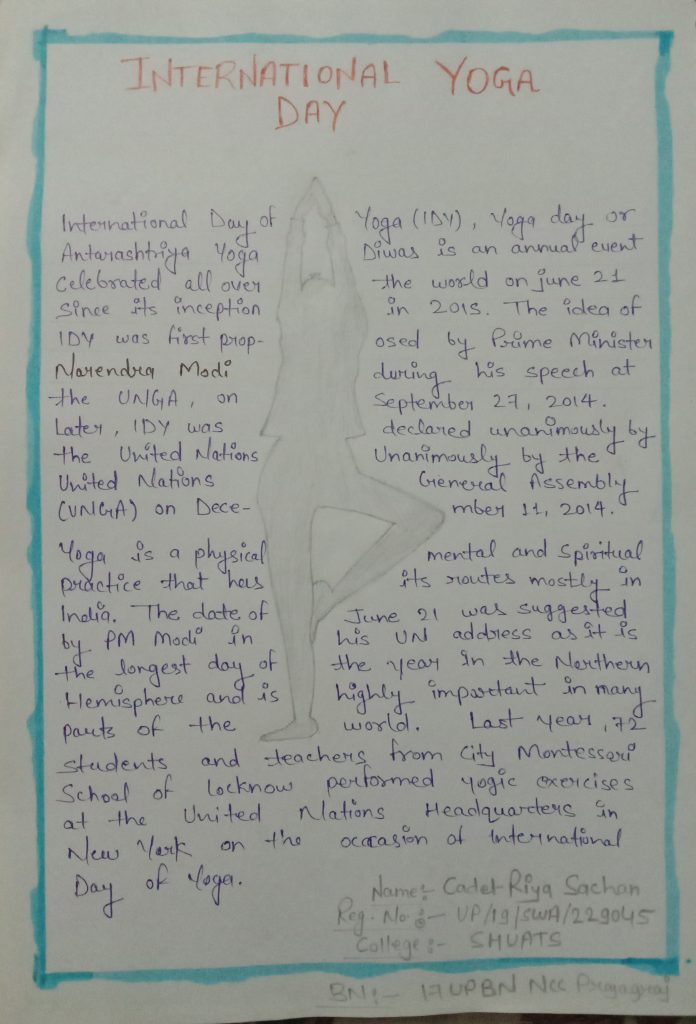 INTERNATIONAL YOGA
DAY
International Day of Yoga (IDY), Yoga day or
Antarashtriya Yoga Diwas is an annual event
celebrated all over the world on june 21
since its inception in 2015. The idea of
IDY was first prop- osed by Prime Minister
Narendra Modi during his speech at
the UNGA, on September 27, 2014.
Later, IDY was declared unanimously by
the United Nations Unanimously by the
United Nations General Assembly
(UNGA) on Dece- mber 11, 2014.
Yoga is a physical mental and Spiritual
practice that has its routes mostly in
India. The date of June 21 was suggested
by PM Modi in his UN address as it is
the longest day of the year in the Northern
Hemisphere and is highly important in many
parts of the world. Last year, 72
students and teachers from City Montessori
School of Locknow performed yogic exercises
at the United Nations Headquarters in
New York on the occasion of International
Day of Yoga.
Name:- Cadet Riya Sachan
Reg. No. :- UP/19/SWA/229045
College :- SHUATS
BN:- 17 UPBN Ncc Prayagraj